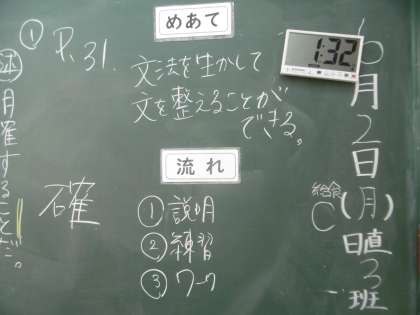 1:32
6月2日(月)
日直3班
給食C
めあて
① P.31.
文法を生かして
文を整えることが
できる。
流れ
①説明
②練習
③ワーク
確
月確することだ。